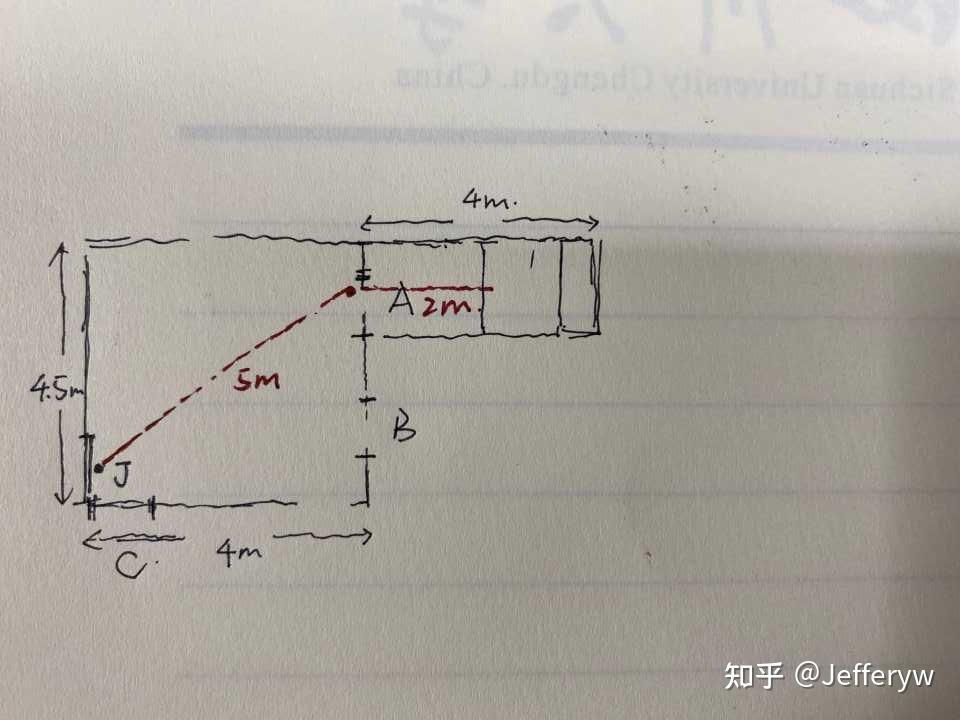 Sichuan University Chengdu. China
4m.
A 2m.
4.5m
5m
B
J
4m
C.
知乎 @Jefferyw